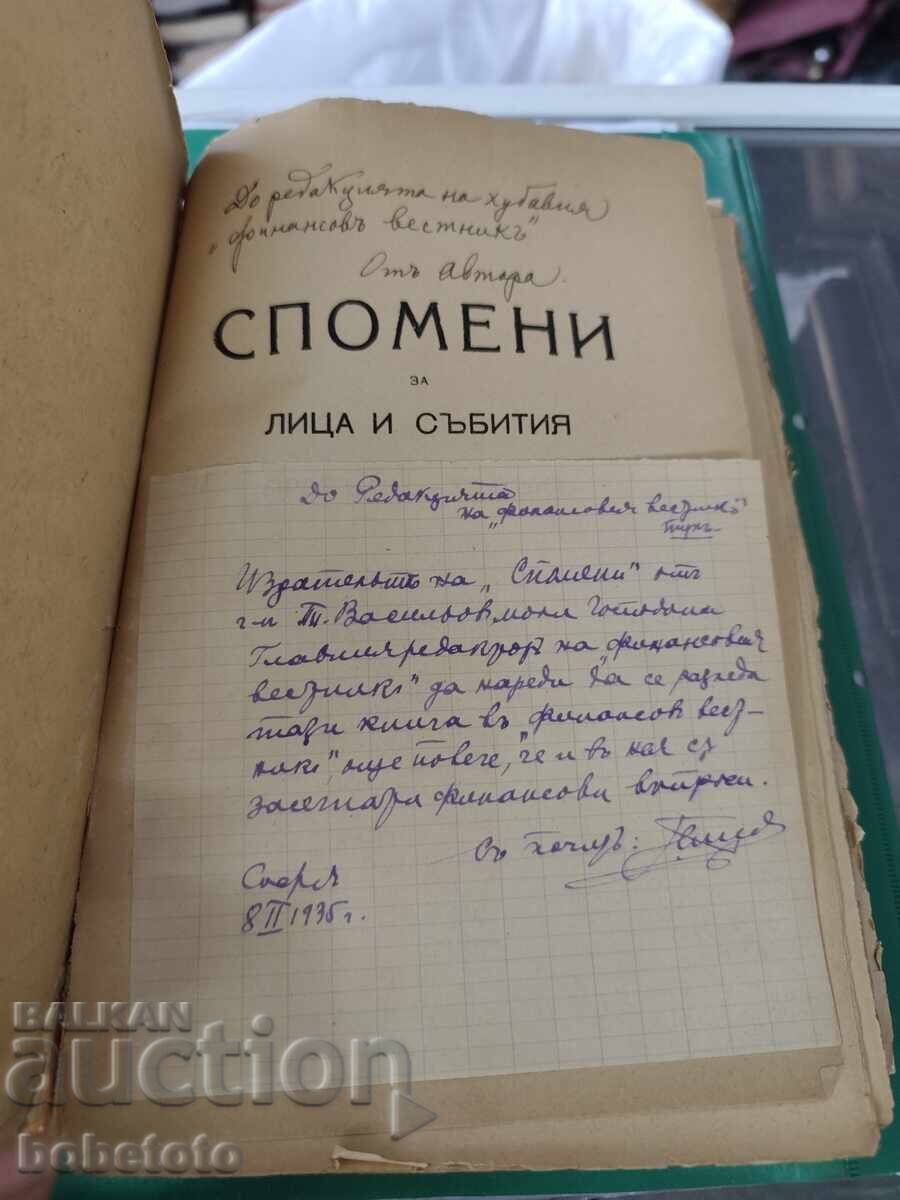 До редакцията на хубавия
„Финансовъ вестникъ"
Отъ Автора.
СПОМЕНИ
ЗА
ЛИЦА И СЪБИТИЯ
До Редакцията
на „Финансовия вестникъ"
Издательтъ на „Спомени" отъ
г-н Т. Васильов моли Господина
Главния редакторъ на „Финансовия
вестникъ" да нареди да се разгледа
тази книга въ „Финансов вест-
никъ", още повече, че и въ нея са
засегнати финансови въпроси.
Съ почит:
София
8 II 1935 г.
BALKAN
auction
bobetoto